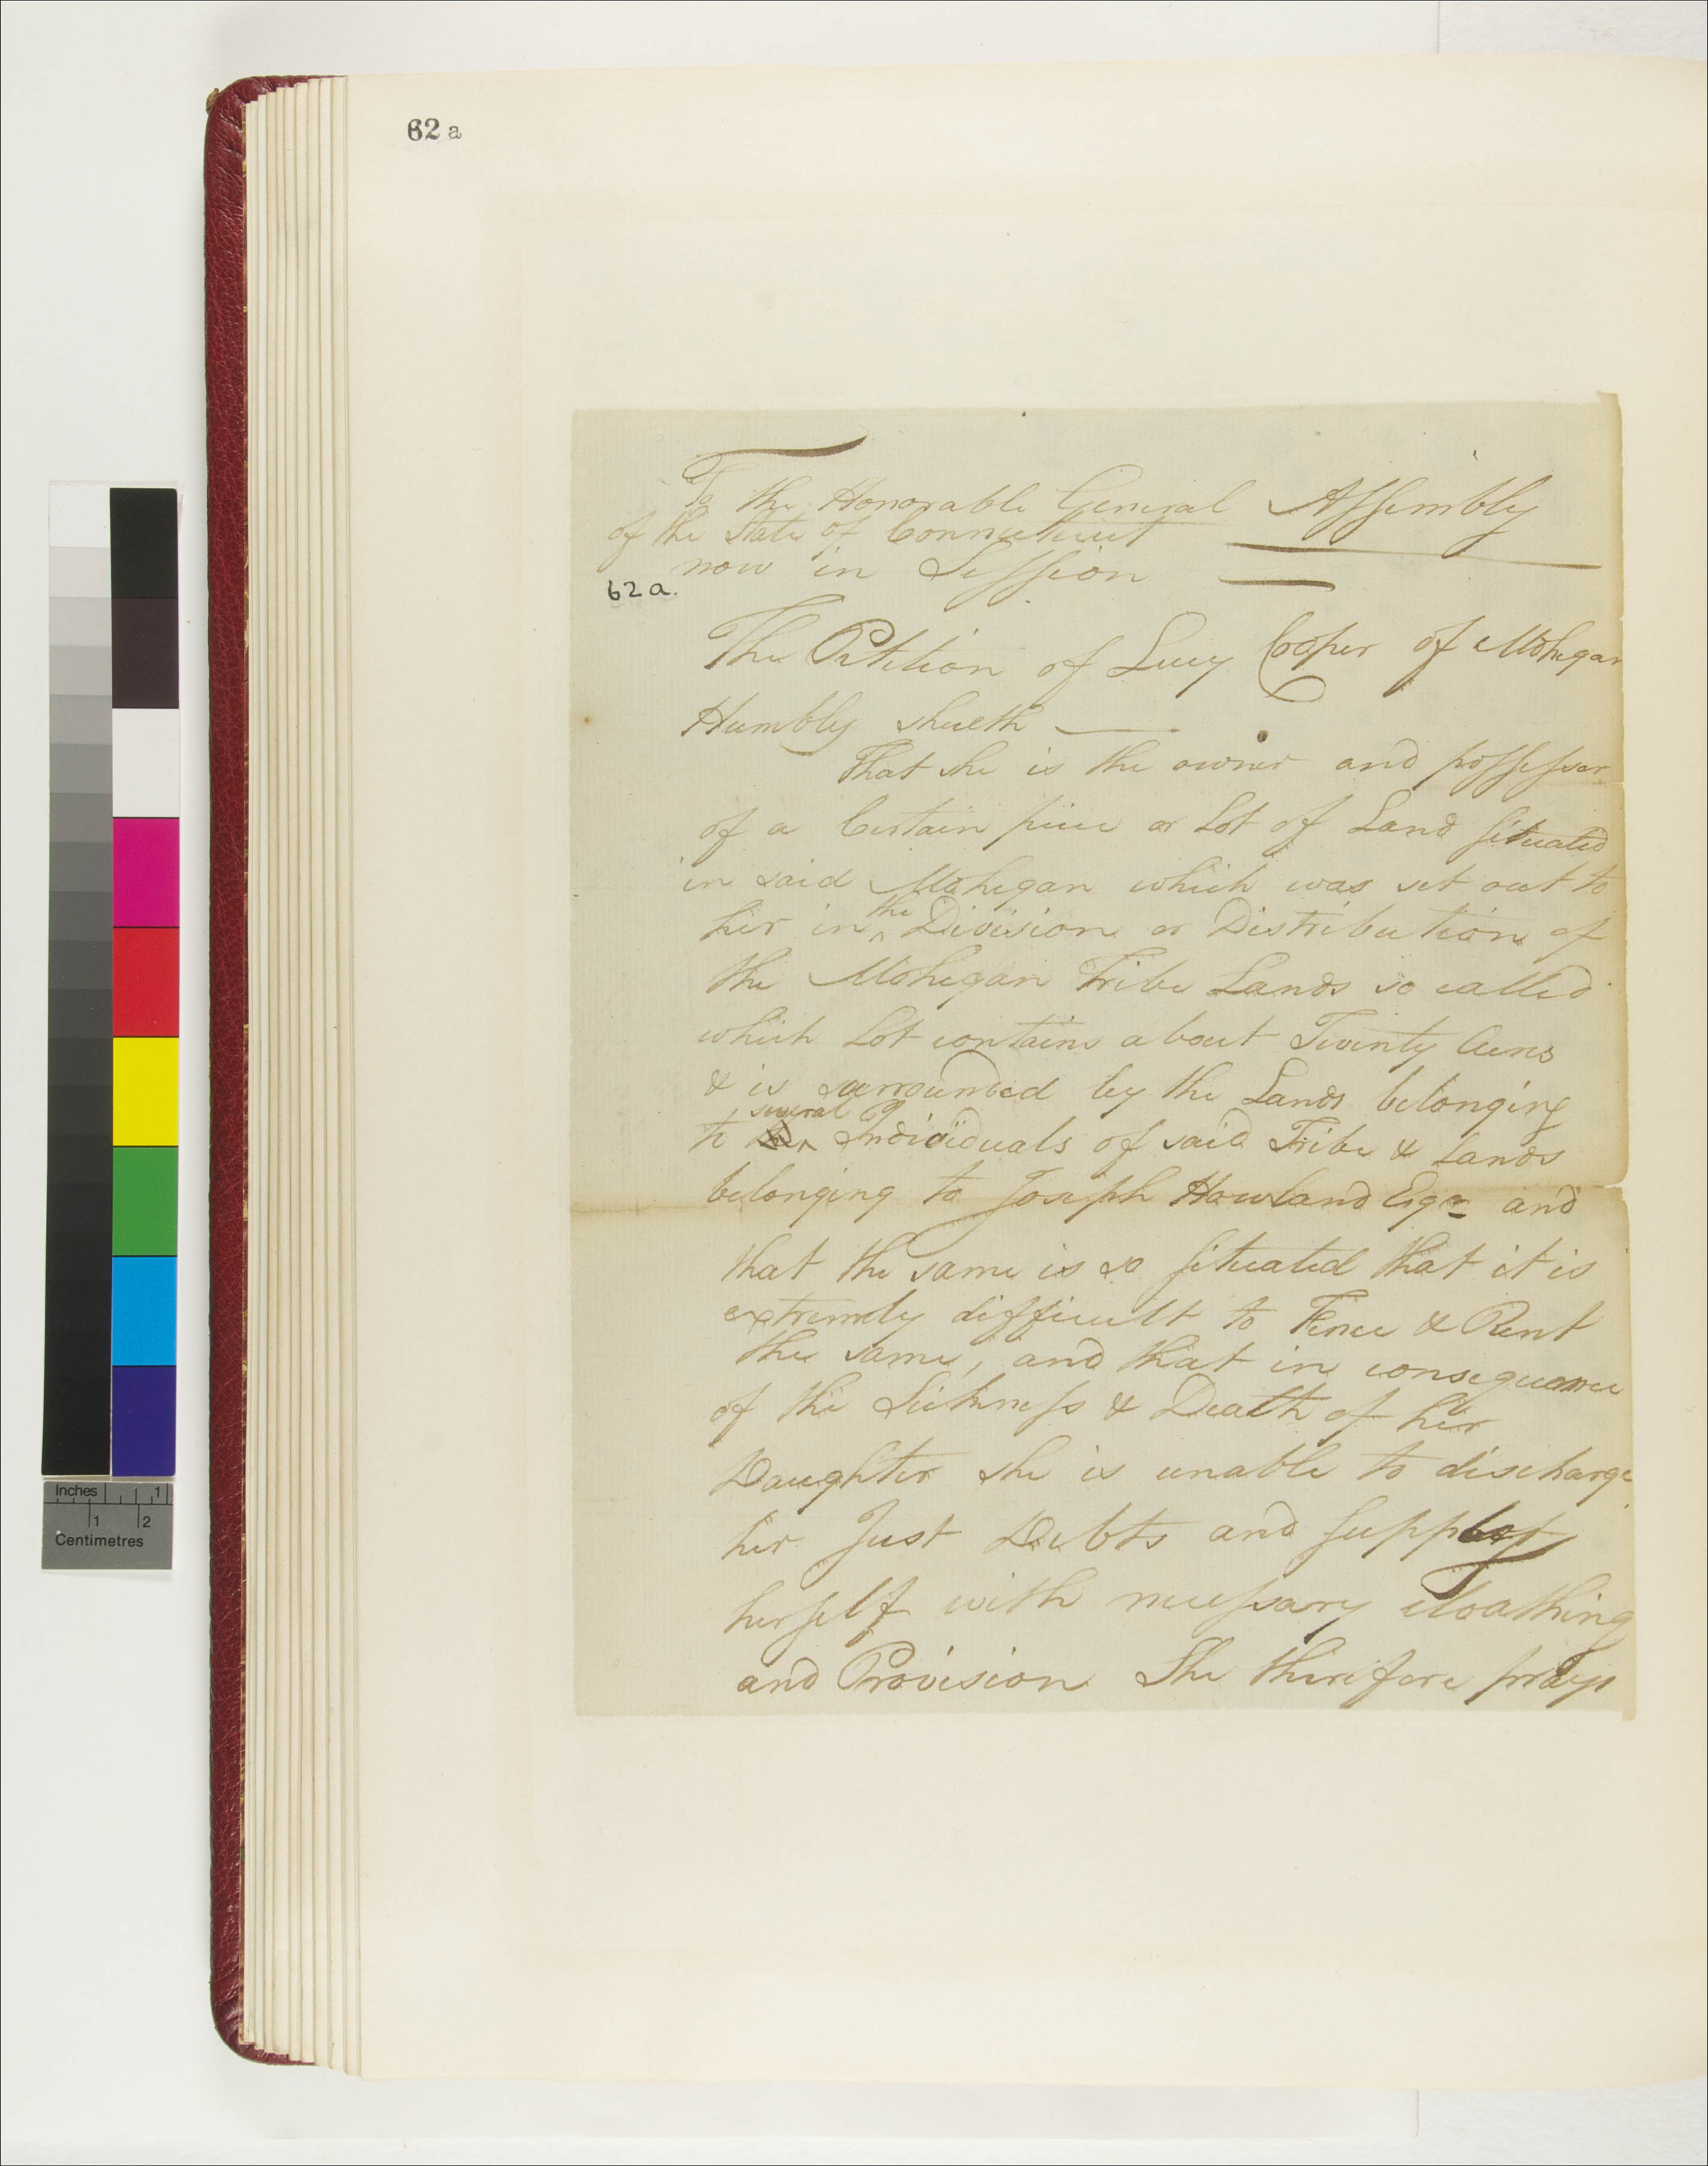 62 a
To the Honorable General Assembly
of the State of Connecticut
now in Session
62a.
The Petition of Lucy Cooper of Mohegan
Humbly sheweth
That she is the owner and possessor
of a Certain piece or Lot of Land situated
in said Mohegan which was set out to
her in ^the Division or Distribution of
the Mohegan Tribe Lands so called
which Lot contains about Twenty Acres
& is surrounded by the Lands belonging
to ^several Individuals of said Tribe & Lands
belonging to Joseph Howland Esqr and
that the same is so situated that it is
extremely difficult to Fence & Rent
the same, and that in consequence
of the Sickness & Death of her
Daughter she is unable to discharge
her Just Debts and supply
herself with necessary cloathing
and Provision She therefore prays
Inches 1
1 2
Centimetres